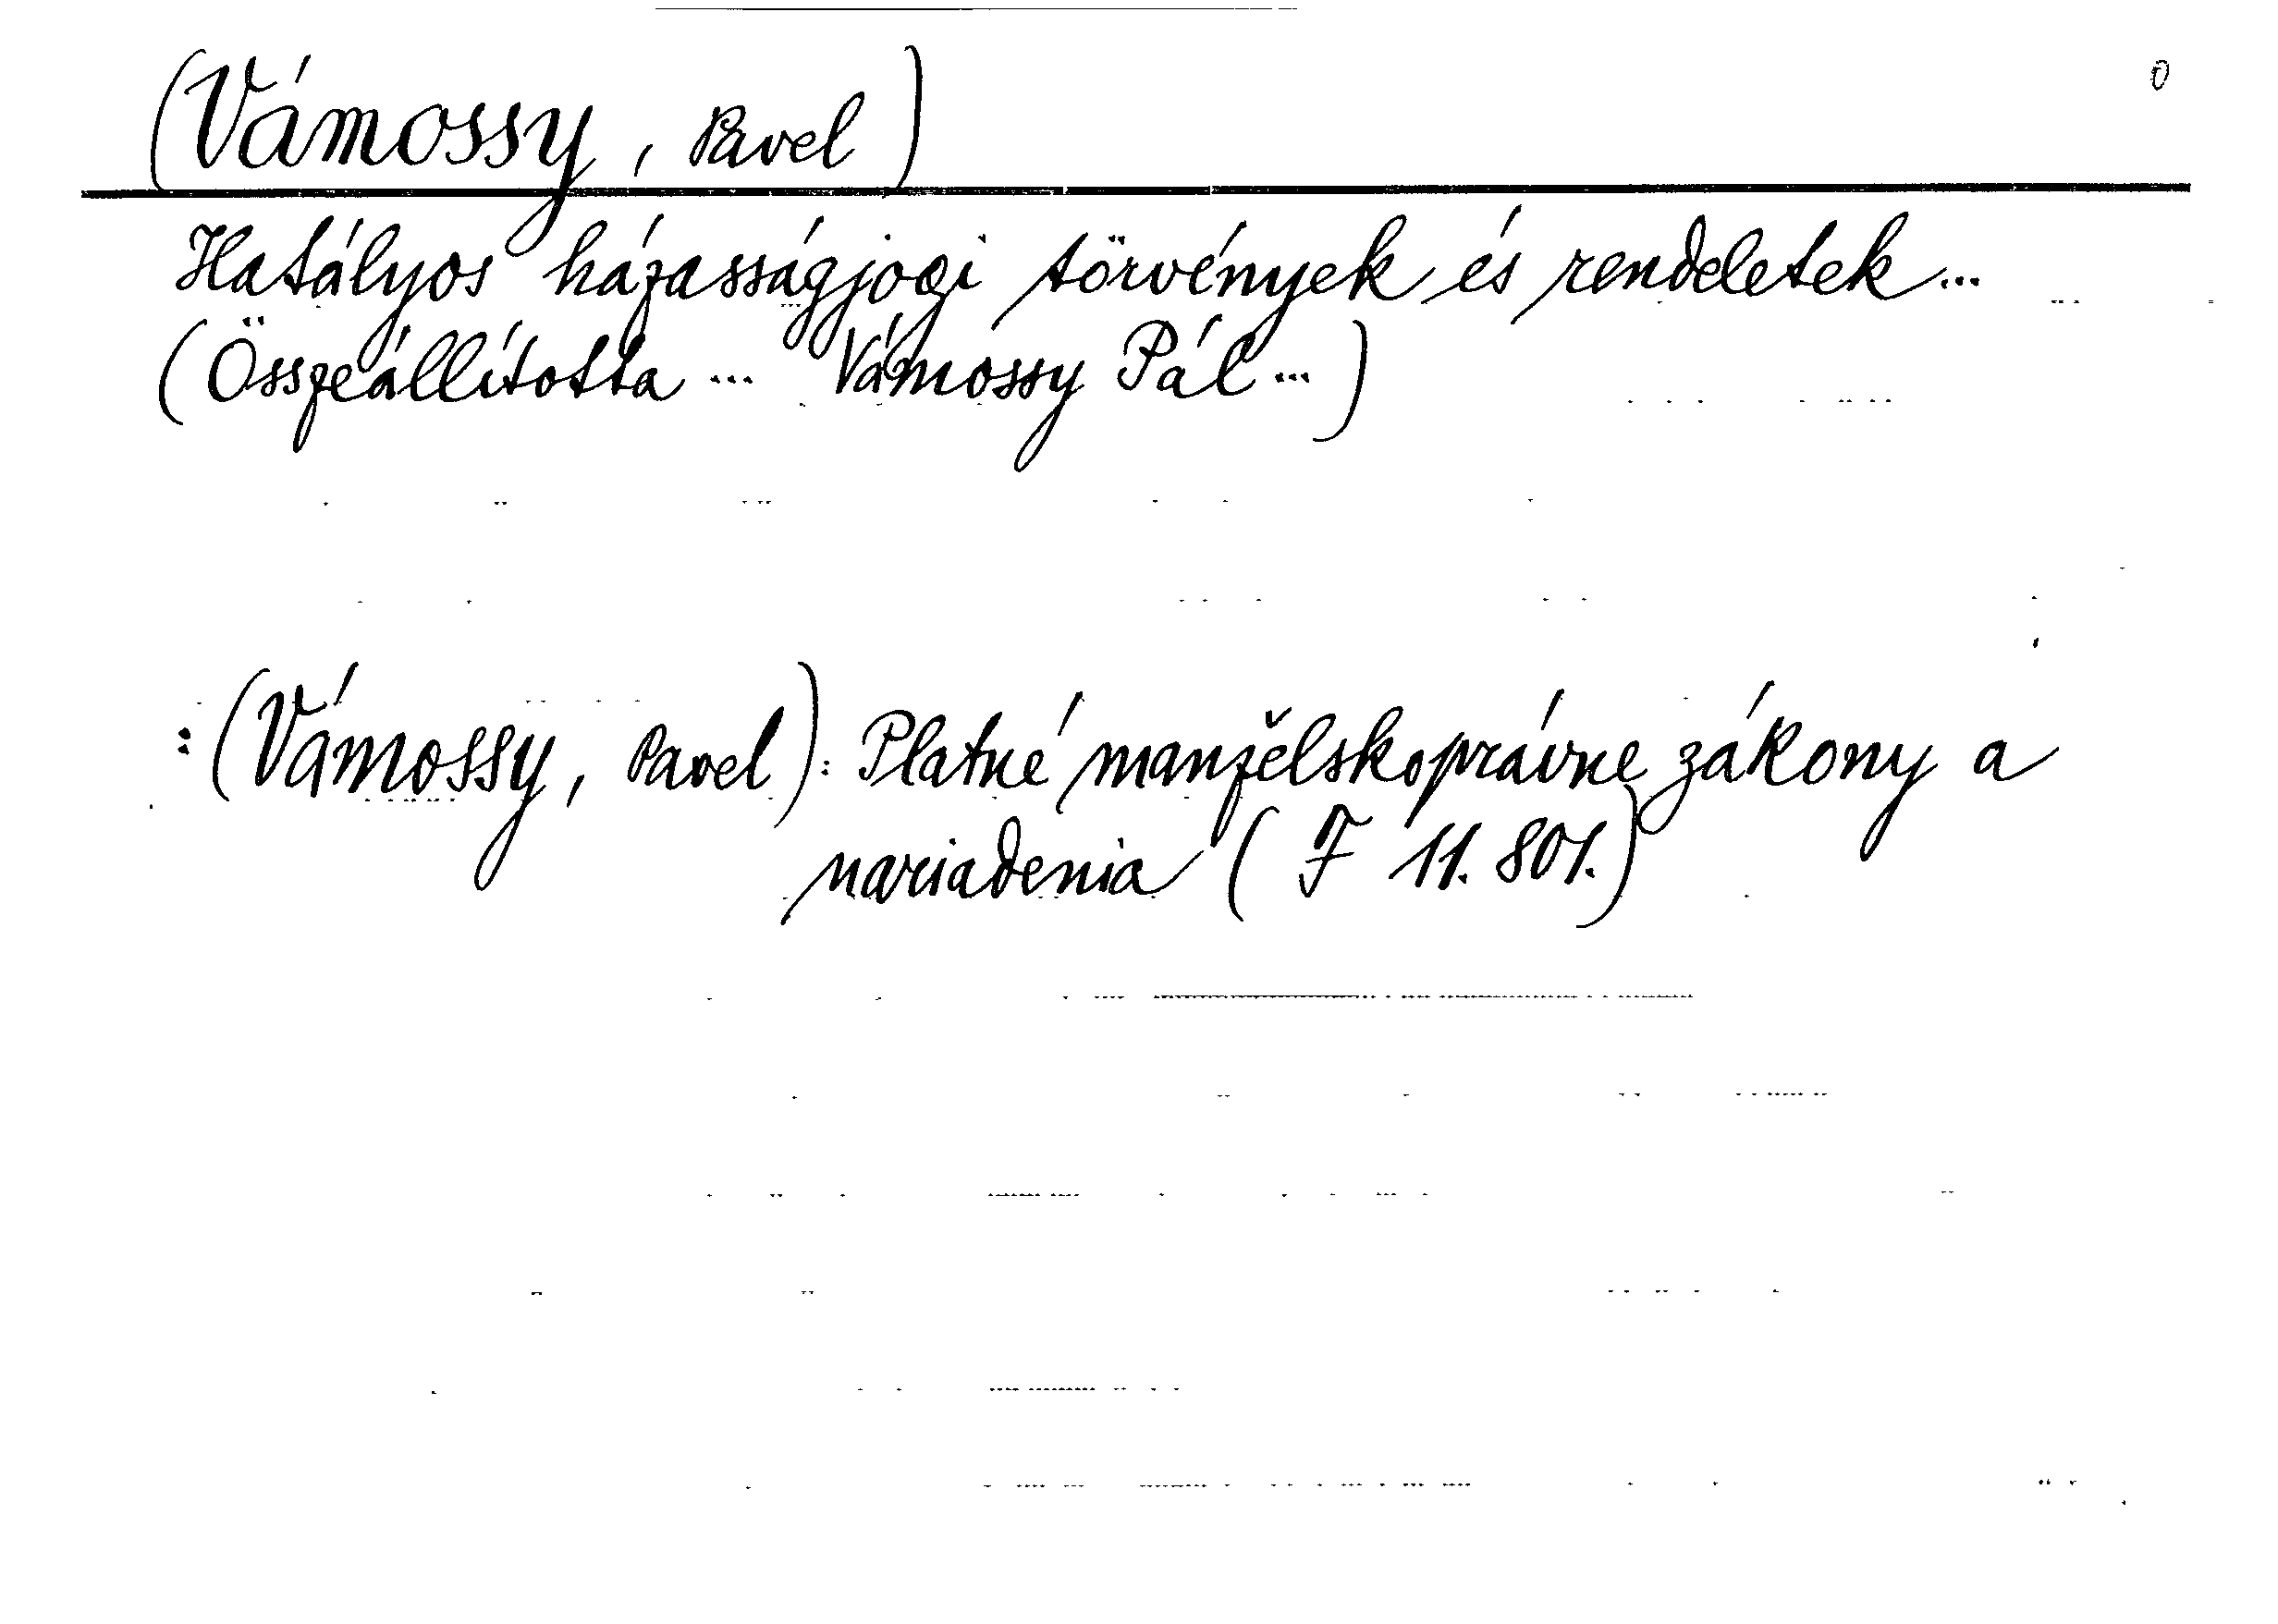 (Vámossy, Pavel)
Hatályos házasságjogi törvények és rendeletek...
(Összeállította ... Vámossy Pál ...)
:(Vámossy, Pavel): Platné manželskoprávne zákony a
nariadenia (F 11.801.)